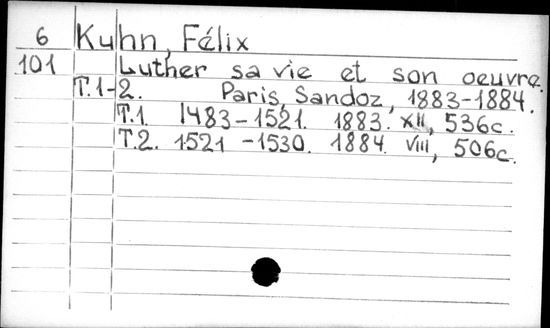 6 Kuhn, Félix
101 Luther sa vie et son oeuvre.
T.1-2. Paris, Sandoz, 1883-1884.
T.1. 1483-1521. 1883. XII, 536c.
T.2. 1521-1530. 1884. VIII, 506c.